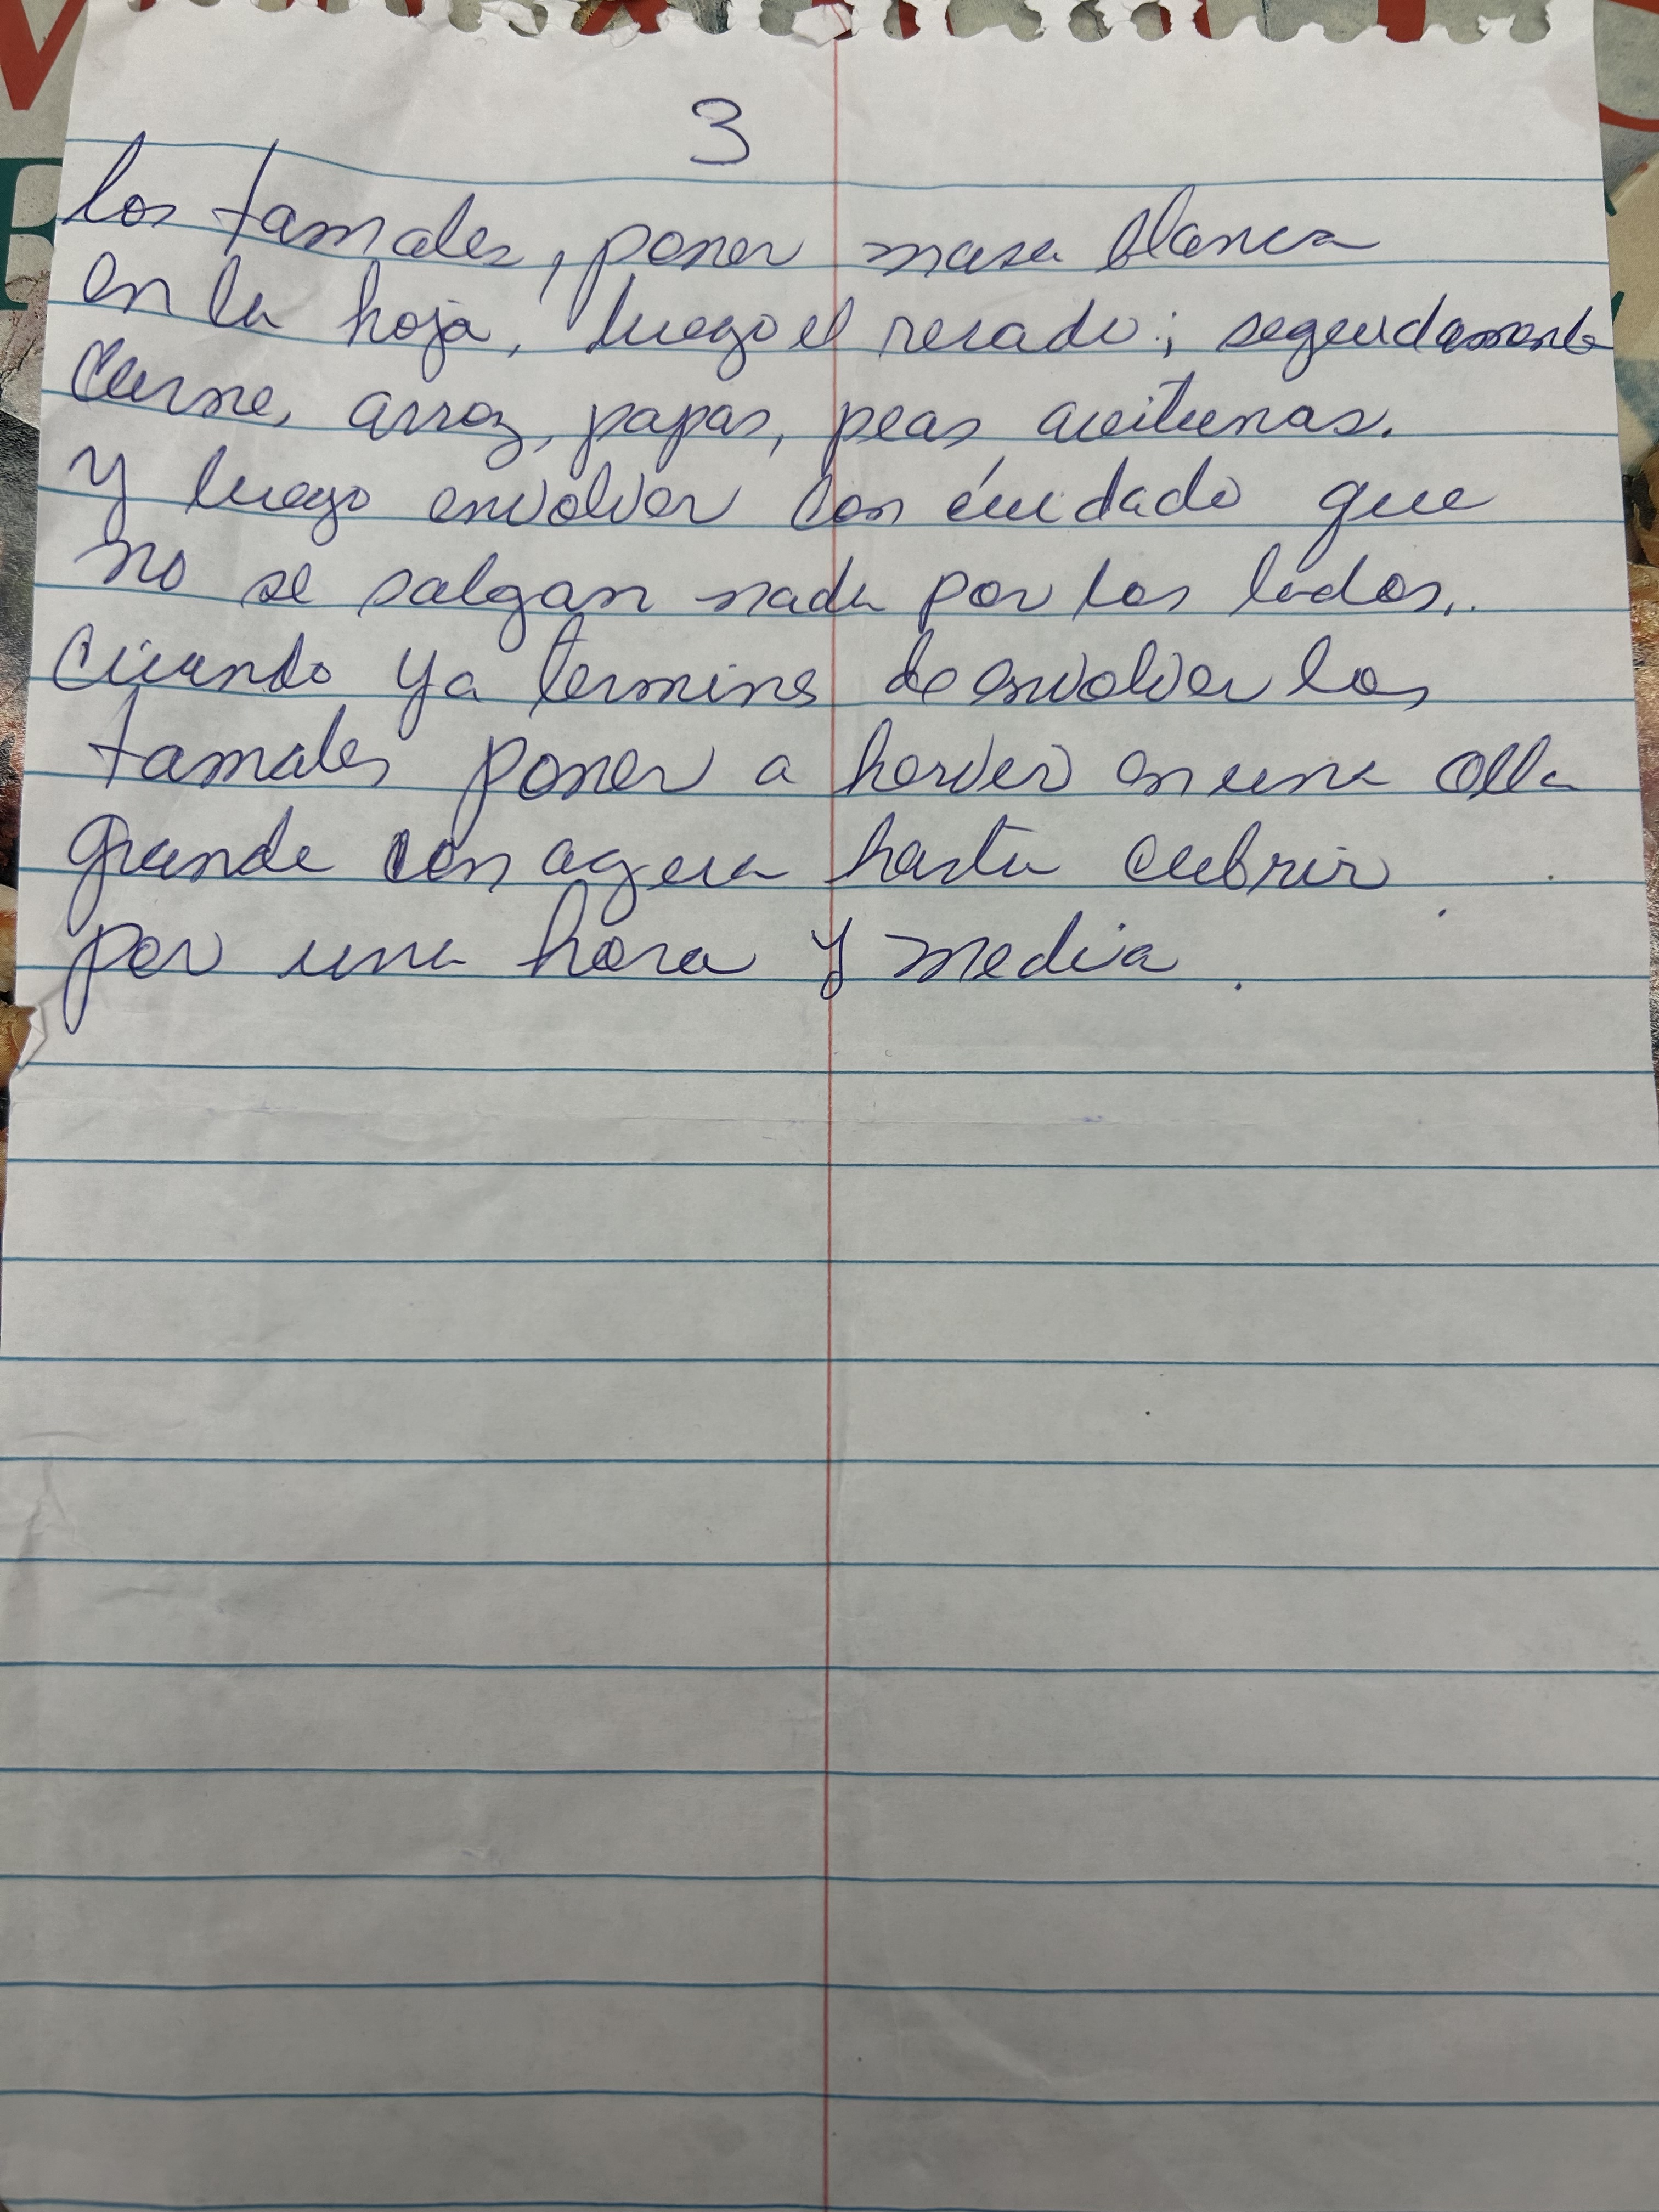 3
los tamales, poner masa blanca
en la hoja, luego el recado; seguidamente
carne, arroz, papas, peas aceitunas.
Y luego envolver con cuidado que
no se salgan nada por los lados.
Cuando ya termine de envolver los
tamales poner a herver en una olla
grande con agua hasta cubrir
por una hora y media.